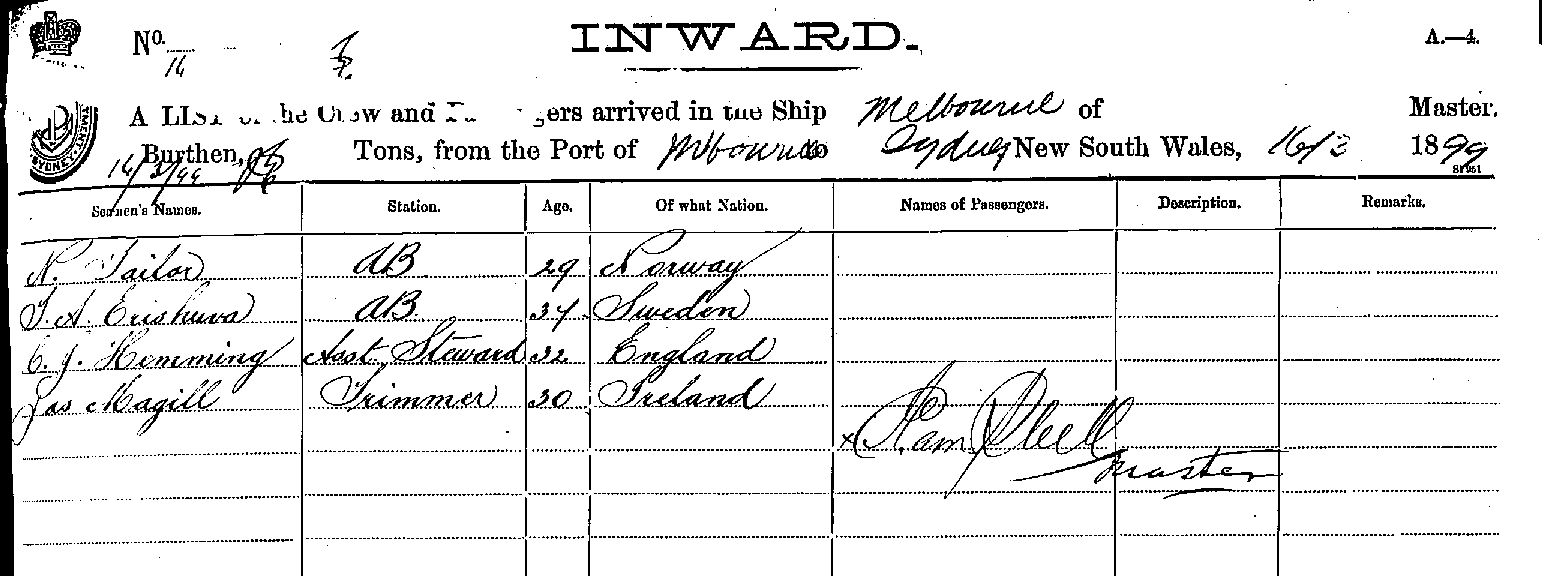 No. 16
INWARD.
A.—4.
A LIST of the Crew and Passengers arrived in the Ship Melbourne of Master.
Burthen, Tons, from the Port of Mlbourne to Sydney New South Wales, 16/3 1899
16/3/99
Seamen's Names. Station. Age. Of what Nation. Names of Passengers. Description. Remarks.
N. Tailor AB 29 Norway
AB 34 Sweden
C. J. Hemming Asst Steward 32 England
Jas Magill Trimmer 30 Ireland
Master